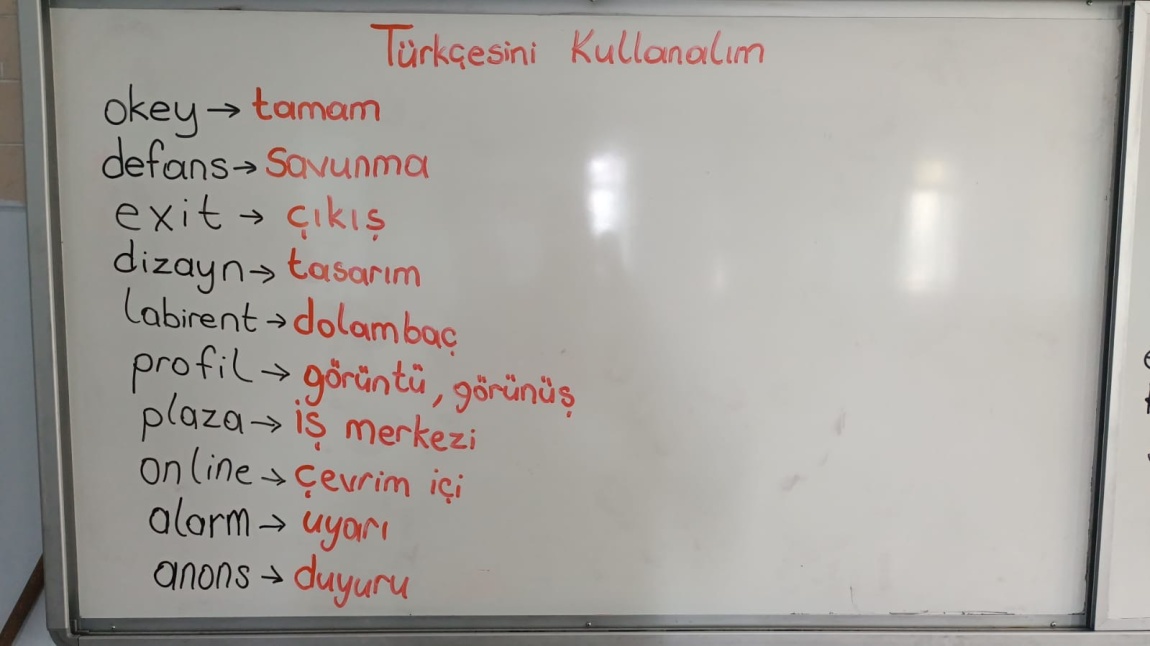 Türkçesini Kullanalım
okey → tamam
defans → Savunma
exit → çıkış
dizayn → tasarım
labirent → dolambaç
profil → görüntü, görünüş
plaza → iş merkezi
online → çevrim içi
alarm → uyarı
anons → duyuru